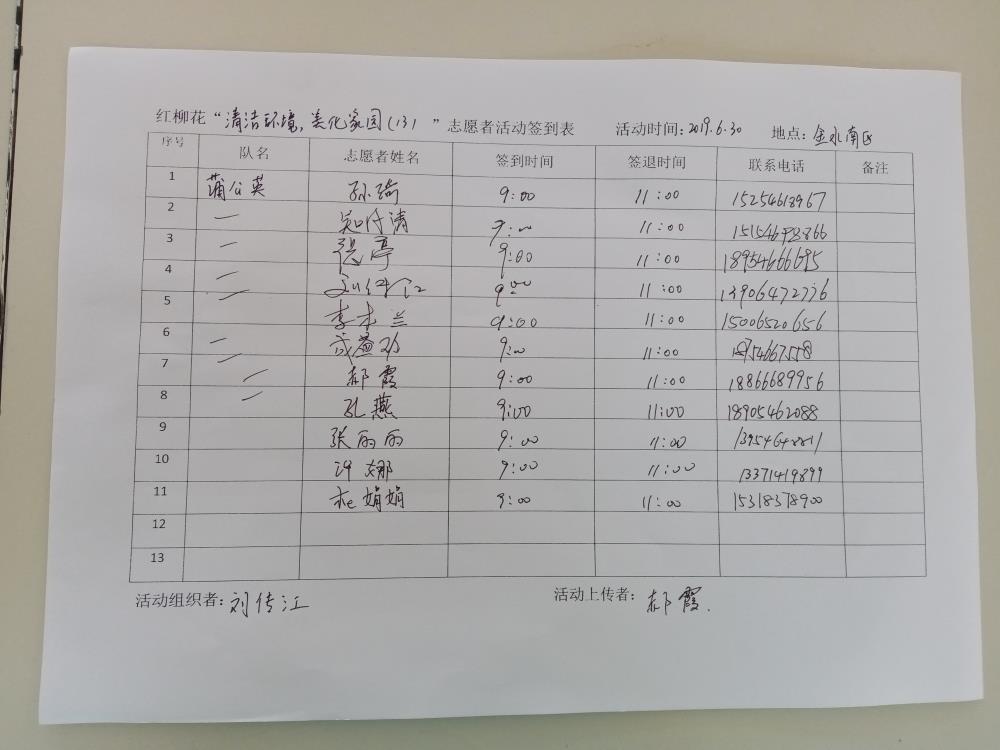 红柳花“清洁环境,美化家园(13)”志愿者活动签到表 活动时间:2019.6.30 地点:金水南区
序号 队名 志愿者姓名 签到时间 签退时间 联系电话 备注
1 蒲公英 孙琦 9:00 11:00 15254613967
2 〃 9:00 11:00
3 〃 张亭 9:00 11:00 18954666695
4 〃 刘传江 9:00 11:00 13906472776
5 〃 李木兰 9:00 11:00 15006520656
6 〃 9:00 11:00
7 〃 郝霞 9:00 11:00 18866689956
8 〃 孔燕 9:00 11:00 18905462088
9 张丽丽 9:00 11:00
10 许娜 9:00 11:00 13371419899
11 娟娟 9:00 11:00 15318378900
12
13
活动组织者:刘传江 活动上传者:郝霞.